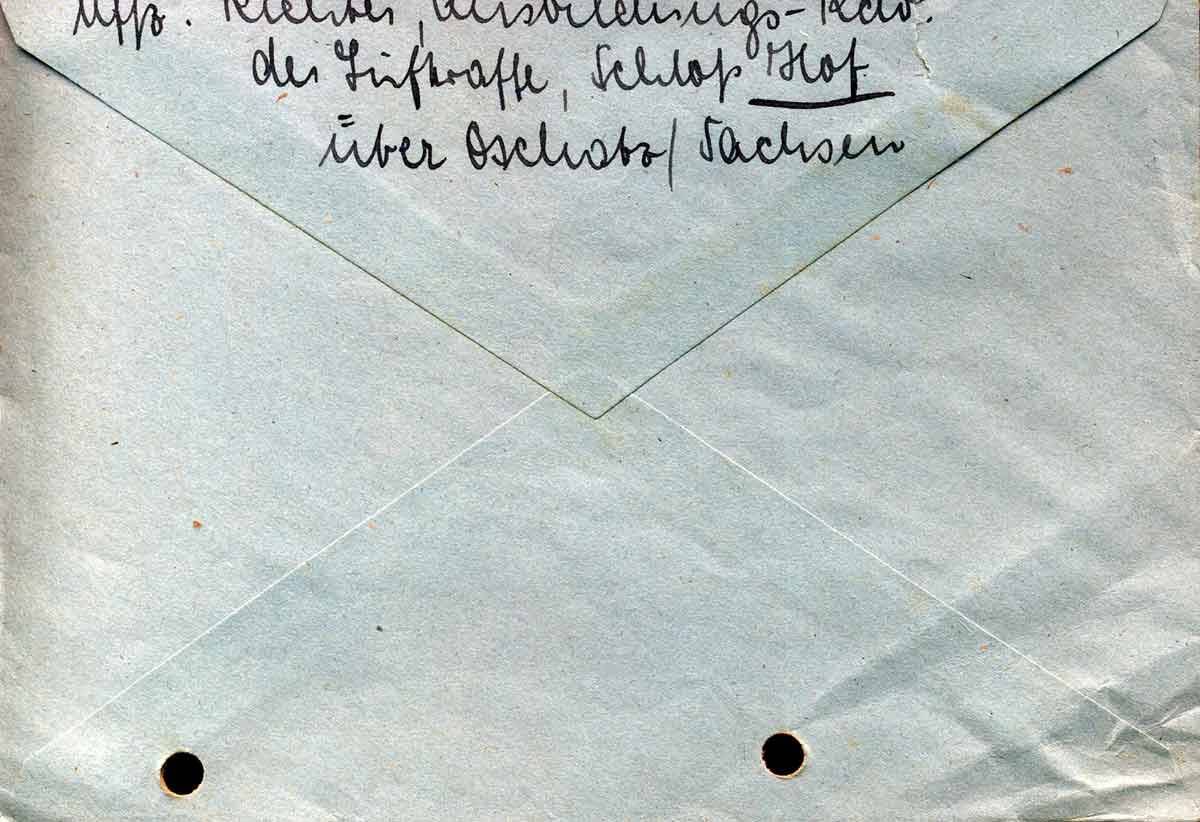 Uffz. Richter, Ausbildungs-Kdo.
der Luftwaffe, Schloß Hof
über Oschatz/Sachsen